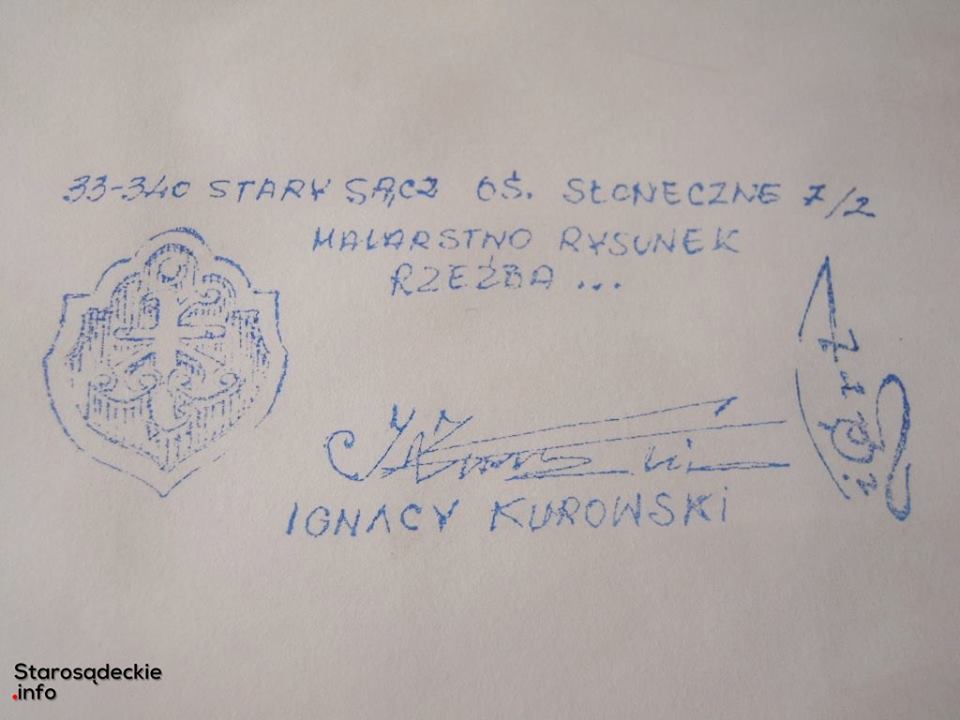 33-340 STARY SĄCZ OŚ. SŁONECZNE 7/2
MALARSTWO RYSUNEK
RZEŹBA ...
IGNACY KUROWSKI
Starosądeckie
.info